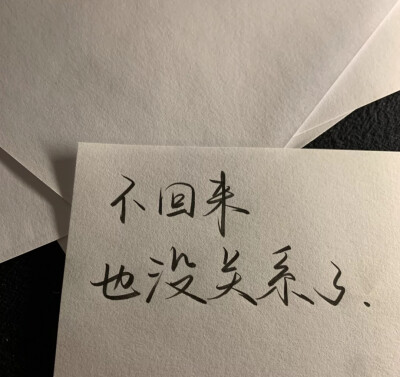 不回来
也没关系了.